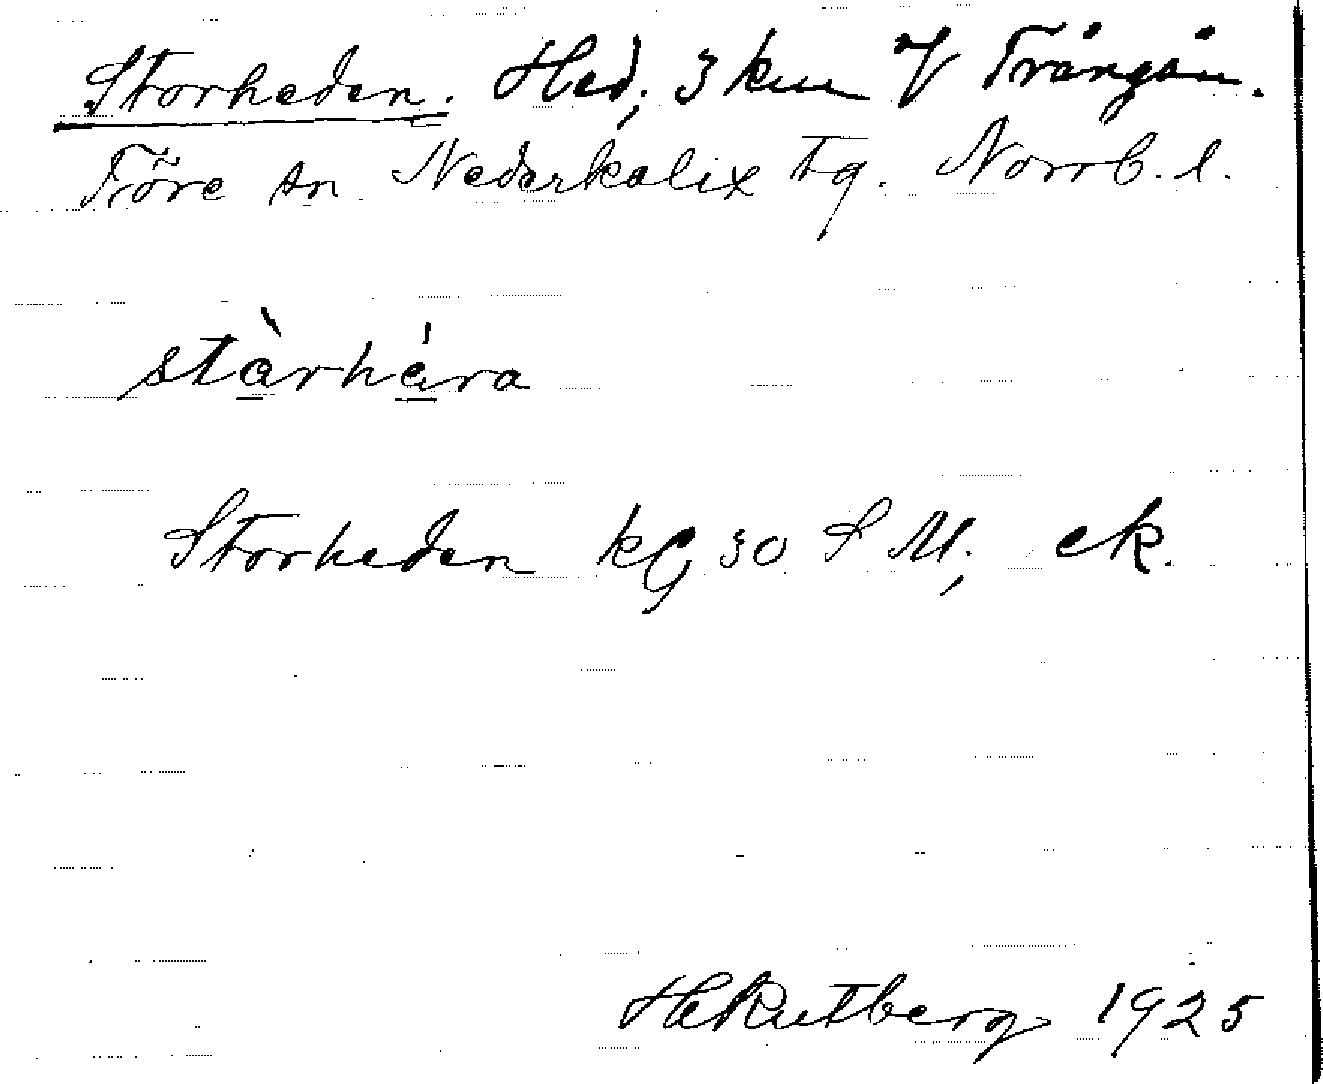 Storheden. Hed; 3 km V Trångån.
Töre sn Nederkalix tg. Norrb. l.
stàrhára
Storheden kG 30 S M; ek.
HRutberg 1925